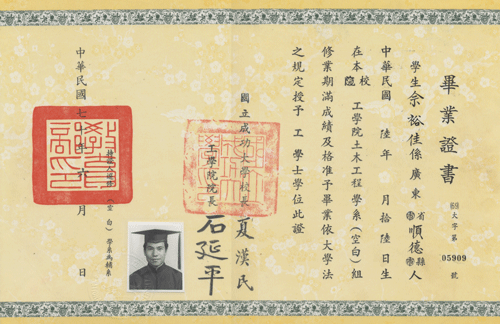 畢業證書
大字第 05909 號
學生余裕佳係廣東省順德縣人
中華民國 陸年 月拾陸日生
在本校工學院土木工程學系(空白)組
修業期滿成績及格准予畢業依大學法
之規定授予工學士學位此證
國立成功大學校長夏漢民
工學院院長石延平
(空白)學系為輔系
中華民國七 年六月 日